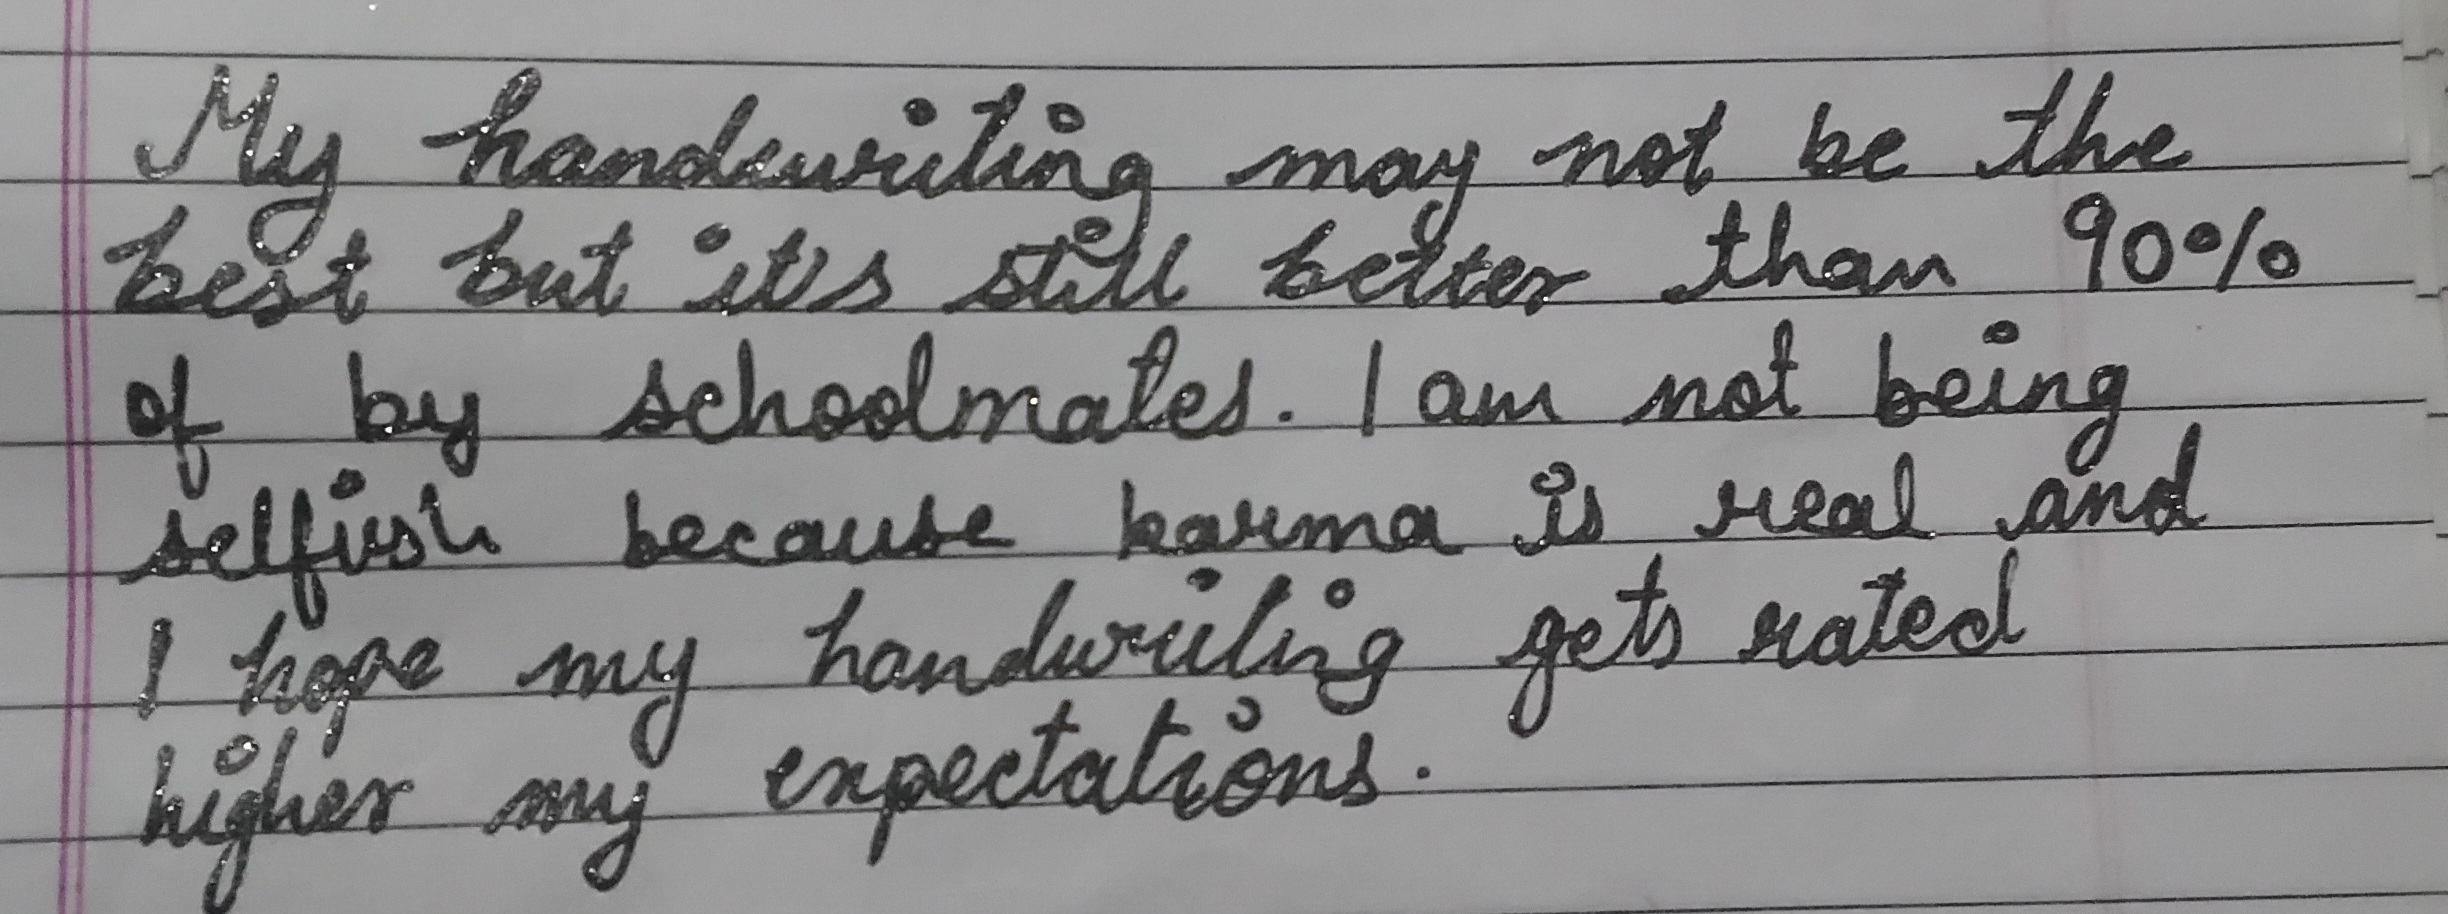 My handwriting may not be the
best but it's still better than 90%
of by schoolmates. I am not being
selfish because karma is real and
I hope my handwriting gets rated
higher my expectations.